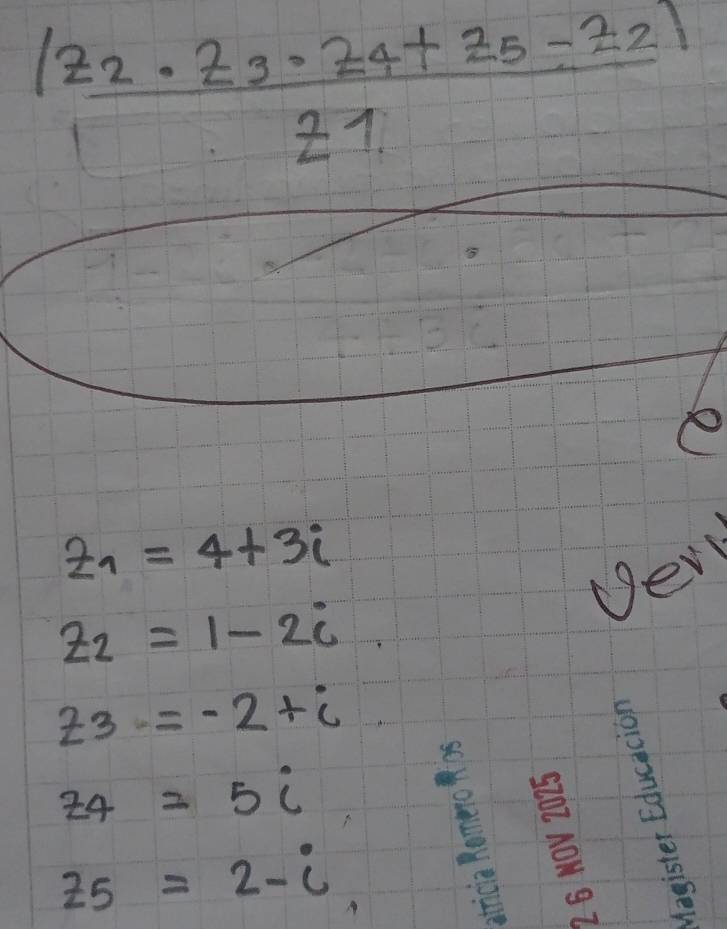 (z2 . z3 . z4 + z5 - z2)
z1
z1 = 4+3i
z2 = 1-2i.
z3 = -2+i.
z4 = 5i
z5 = 2-i
Romero Ríos
26 NOV 2025
Magister Educación